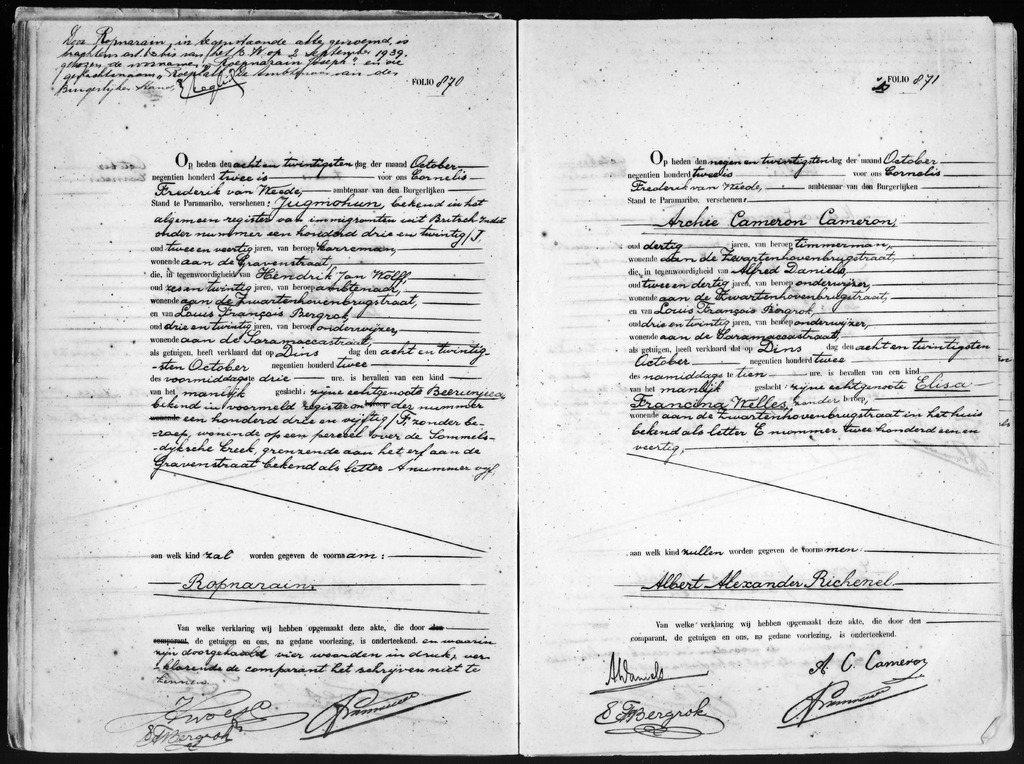 Door Ropnarain, in tegenstaande akte genoemd, is
krachtens art. bis van het B.W. op 2 September 1939
gekozen de voornamen "Roepnarain Joseph" en de
geslachtsnaam de Ambtenaar van den
Burgerlijken Stand,
FOLIO 870
Op heden den acht en twintigsten dag der maand October
negentien honderd twee is voor ons Cornelis
Frederik van Weede, ambtenaar van den Burgerlijken
Stand te Paramaribo, verschenen: Jugmohun, bekend in het
algemeen register van immigranten uit Britsch Indië
onder nummer een honderd drie en twintig /J.
oud twee en veertig jaren, van beroep karreman,
wonende aan de Gravenstraat,
die, in tegenwoordigheid van Hendrik Jan Wolff,
oud zes en twintig jaren, van beroep ambtenaar,
wonende aan de Zwartenhovenbrugstraat,
en van Louis François Bergrok,
oud drie en twintig jaren, van beroep onderwijzer,
wonende aan de Saramaccastraat,
als getuigen, heeft verklaard dat op Dins dag den acht en twintig-
-sten October negentien honderd twee
des voormiddags drie ure. is bevallen van een kind
van het manlijk geslacht: zijne echtgenoote Beerunjiea,
bekend in voormeld register onder nummer
wonende een honderd drie en vijftig / F. zonder be-
-roep, wonende op een perceel over de Sommels-
-dijksche kreek, grenzende aan het erf aan de
Gravenstraat bekend als letter A nummer vijf,
aan welk kind zal worden gegeven de voornaam:
Ropnarain.
Van welke verklaring wij hebben opgemaakt deze akte, die door den
comparant, de getuigen en ons, na gedane voorlezing, is onderteekend. en waarin
zijn doorgehaald vier woorden in druk, ver-
-klarende de comparant het schrijven niet te
kennen.
Bergrok
FOLIO 871
Op heden den negen en twintigsten dag der maand October
negentien honderd twee is voor ons Cornelis
Frederik van Weede, ambtenaar van den Burgerlijken
Stand te Paramaribo, verschenen:
Archie Cameron Cameron,
oud dertig jaren, van beroep timmerman,
wonende aan de Zwartenhovenbrugstraat,
die, in tegenwoordigheid van Alfred Daniels,
oud twee en dertig jaren, van beroep onderwijzer,
wonende aan de Zwartenhovenbrugstraat,
en van Louis François Bergrok,
oud drie en twintig jaren, van beroep onderwijzer,
wonende aan de Saramaccastraat,
als getuigen, heeft verklaard dat op Dins dag den acht en twintigsten
October negentien honderd twee
des namiddags te tien ure. is bevallen van een kind
van het manlijk geslacht: zijne echtgenoote Elisa
Francina Welles, zonder beroep,
wonende aan de Zwartenhovenbrugstraat in het huis
bekend als letter E nummer twee honderd een en
veertig,
aan welk kind zullen worden gegeven de voornamen
Albert Alexander Richenel
Van welke verklaring wij hebben opgemaakt deze akte, die door den
comparant, de getuigen en ons, na gedane voorlezing, is onderteekend.
A. C. Cameron
ADaniels
Bergrok